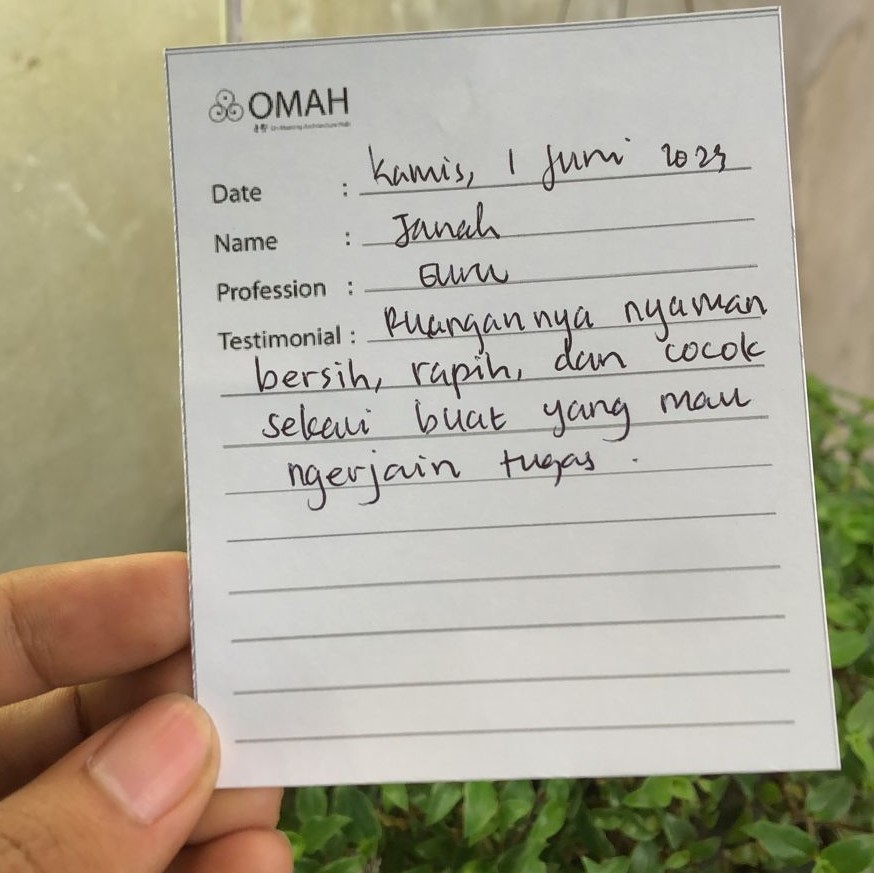 OMAH
On Meaning Architecture Hub
Date : Kamis, 1 Juni 2023
Name : Janah
Profession : Guru
Testimonial : Ruangannya nyaman
bersih, rapih, dan cocok
sekali buat yang mau
ngerjain tugas.